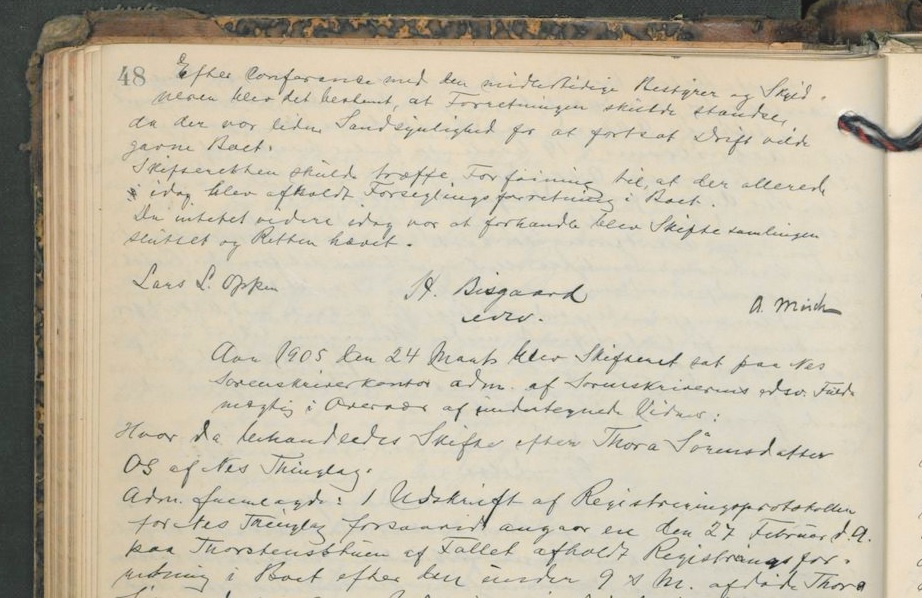 48
Efter Conferance med den midlertidige Bestyrer og Skyld-
neren blev det bestemt, at Forretningen skulde standse,
da der var liden Sandsynlighed for at fortsat Drift vilde
gavne Boet.
Skifteretten skulde træffe Forføining til, at der allerede
idag blev afholdt Forseglingsforretning i Boet.
Da intet videre idag var at forhandle blev Skiftesamlingen
sluttet og Retten hævet.
Lars L. Opken H. Bisgaard A. Minch
edsv.
Aar 1905 den 24 Marts blev Skifteret sat paa Nes
Sorenskriverkontor adm. af Sorenskriverens edsv. Fuld-
mægtig i Overvær af undertegnede Vidner:
Hvor da behandledes Skifte efter Thora Sörensdatter
OS af Nes Thinglag.
Adm. fremlagde: 1 Udskrift af Registreringsprotokollen
for Nes Thinglag forsaavid angaar en den 27 Februar d. A.
paa af Fallet afholdt Registreringsfor-
retning i Boet efter den under 9 s. M. afdøde Thora